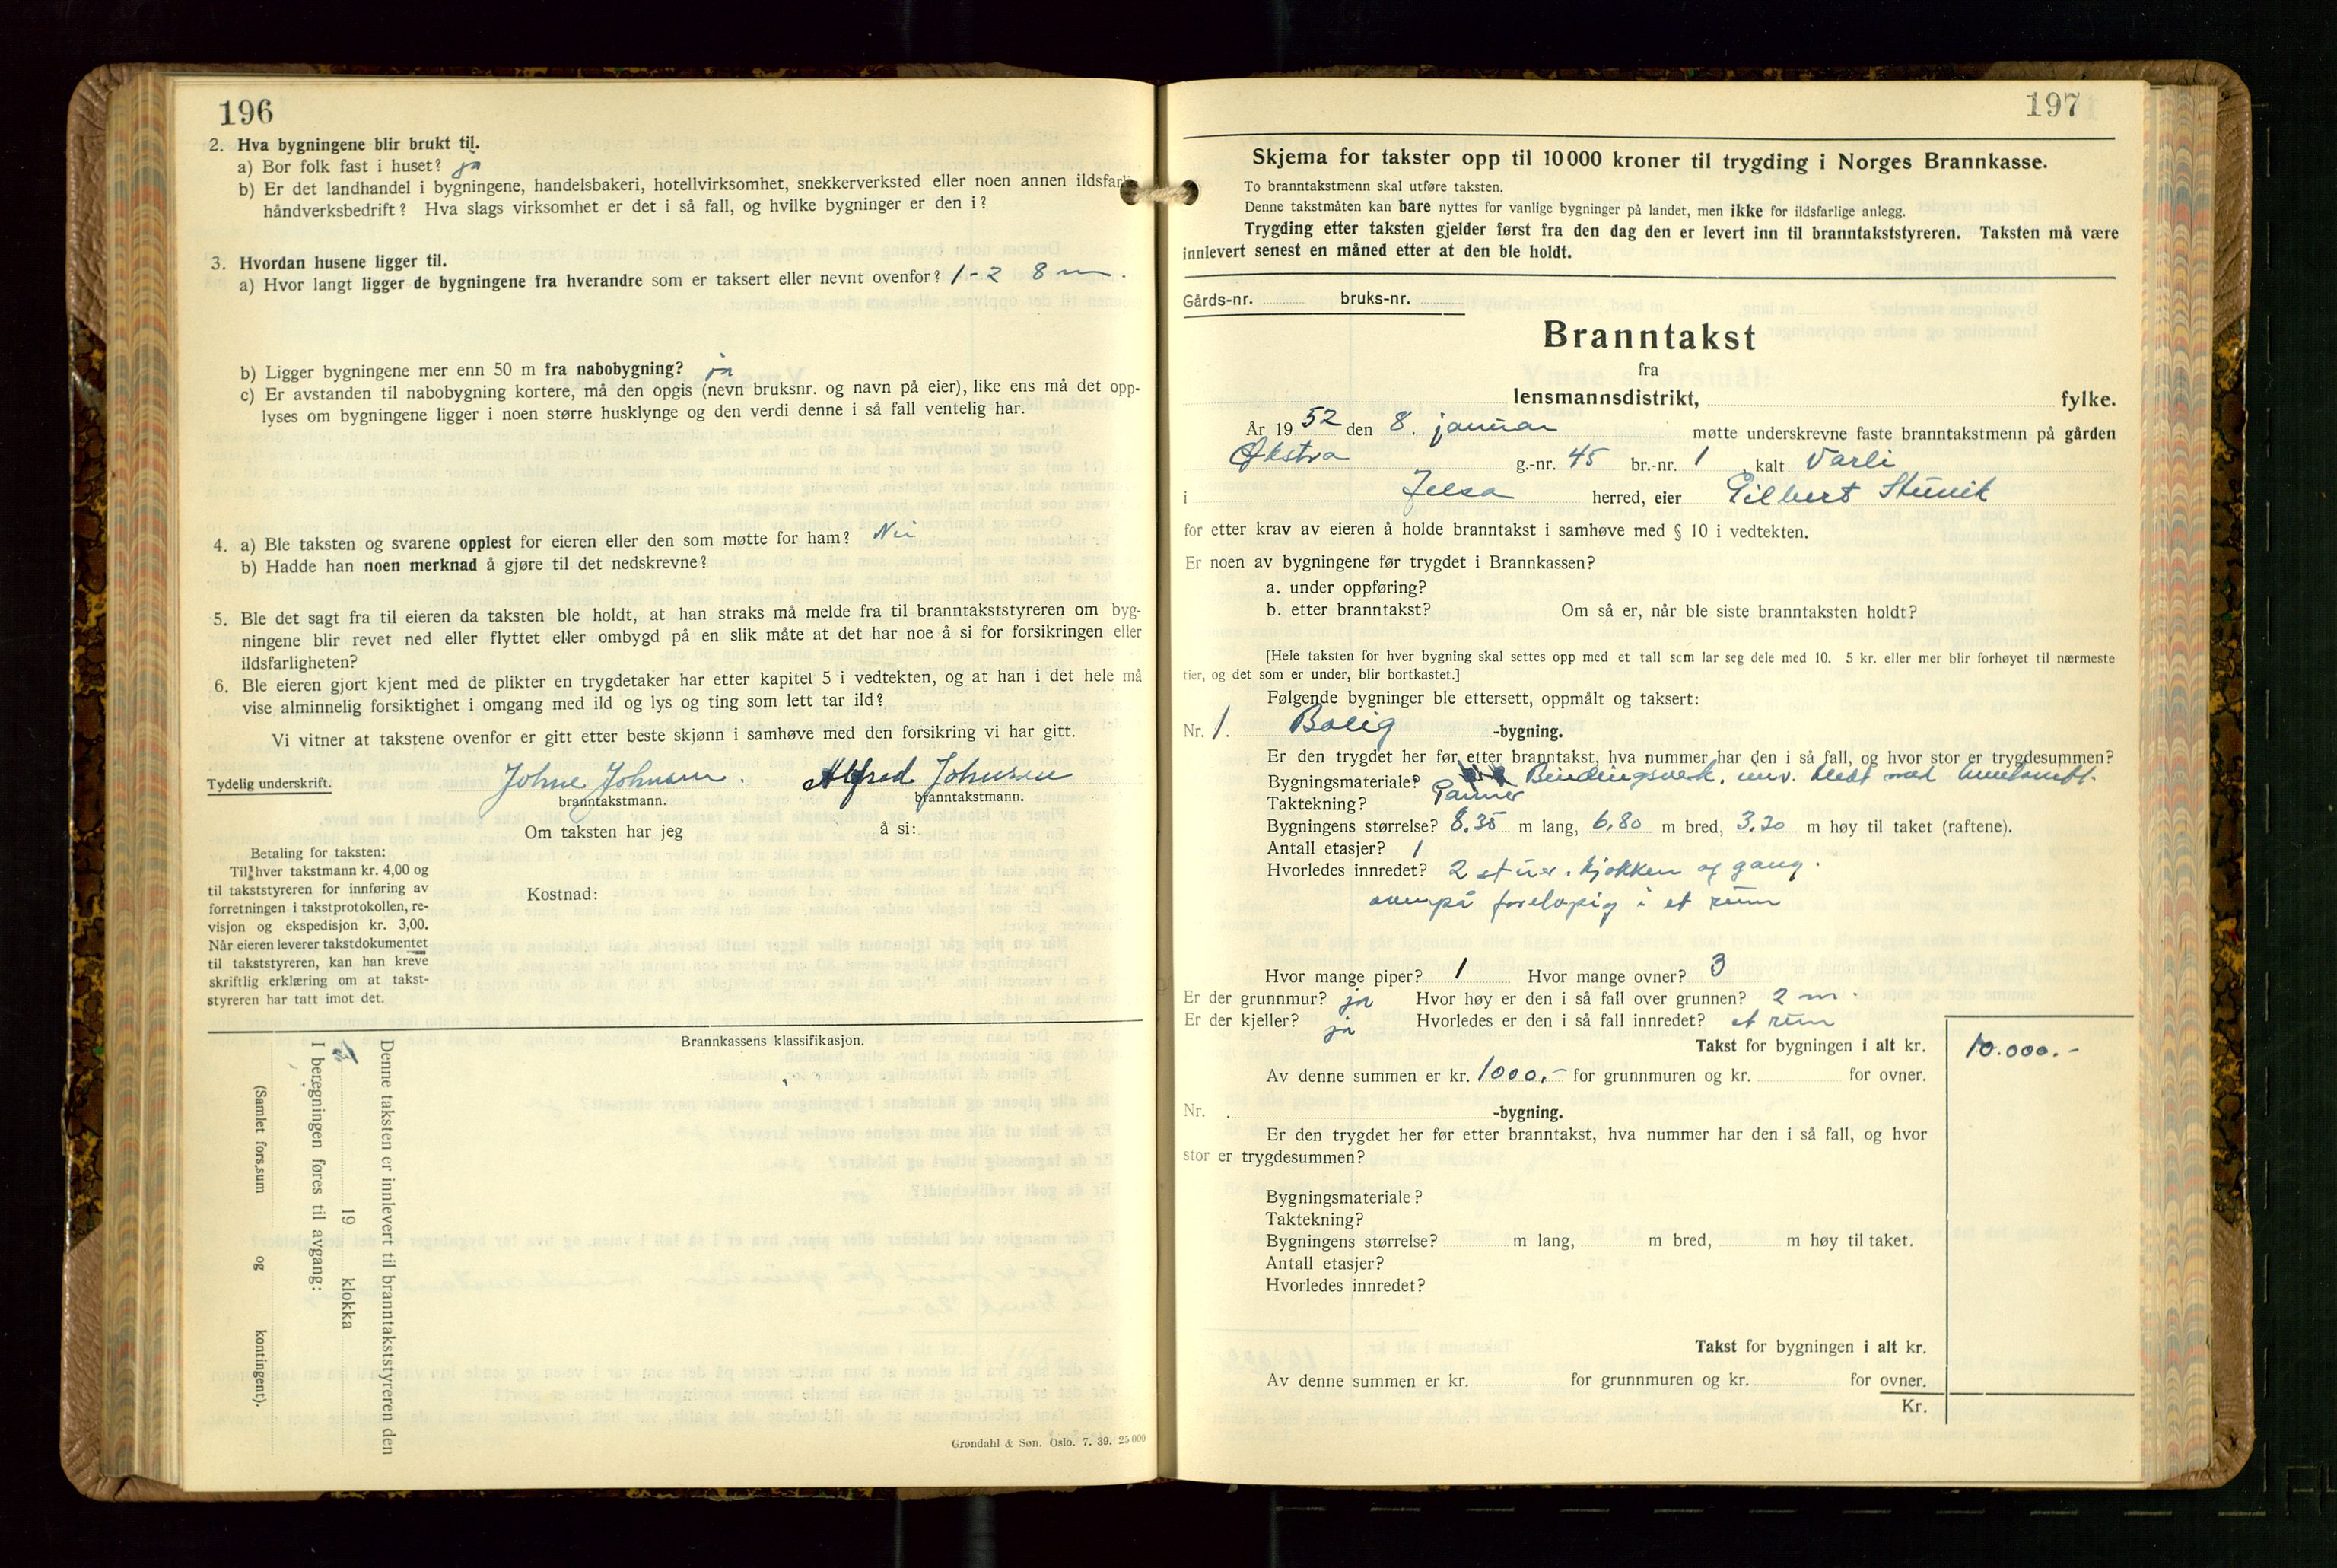 196
2. Hva bygningene blir brukt til.
a) Bor folk fast i huset? ja
b) Er det landhandel i bygningene, handelsbakeri, hotellvirksomhet, snekkerverksted eller noen annen ildsfarlig
håndverksbedrift? Hva slags virksomhet er det i så fall, og hvilke bygninger er den i?
3. Hvordan husene ligger til.
a) Hvor langt ligger de bygningene fra hverandre som er taksert eller nevnt ovenfor? 1-2 8 m.
b) Ligger bygningene mer enn 50 m fra nabobygning? ja
c) Er avstanden til nabobygning kortere, må den opgis (nevn bruksnr. og navn på eier), like ens må det opp-
lyses om bygningene ligger i noen større husklynge og den verdi denne i så fall ventelig har.
4. a) Ble taksten og svarene opplest for eieren eller den som møtte for ham? Nei
b) Hadde han noen merknad å gjøre til det nedskrevne?
5. Ble det sagt fra til eieren da taksten ble holdt, at han straks må melde fra til branntakststyreren om byg-
ningene blir revet ned eller flyttet eller ombygd på en slik måte at det har noe å si for forsikringen eller
ildsfarligheten?
6. Ble eieren gjort kjent med de plikter en trygdetaker har etter kapitel 5 i vedtekten, og at han i det hele må
vise alminnelig forsiktighet i omgang med ild og lys og ting som lett tar ild?
Vi vitner at takstene ovenfor er gitt etter beste skjønn i samhøve med den forsikring vi har gitt.
Tydelig underskrift. Johne Johnsen. Alfred Johnsen
branntakstmann. branntakstmann.
Om taksten har jeg å si:
Betaling for taksten:
Til hver takstmann kr. 4,00 og
til takststyreren for innføring av
forretningen i takstprotokollen, re-
visjon og ekspedisjon kr. 3,00.
Når eieren leverer takstdokumentet
til takststyreren, kan han kreve
skriftlig erklæring om at takst-
styreren har tatt imot det.
Kostnad:
Brannkassens klassifikasjon.
Denne taksten er innlevert til branntakststyreren den
19 klokka
I beregningen føres til avgang:
(Samlet fors.sum og kontingent).
Grøndahl & Søn. Oslo. 7. 39. 25 000
197
Skjema for takster opp til 10 000 kroner til trygding i Norges Brannkasse.
To branntakstmenn skal utføre taksten.
Denne takstmåten kan bare nyttes for vanlige bygninger på landet, men ikke for ildsfarlige anlegg.
Trygding etter taksten gjelder først fra den dag den er levert inn til branntakststyreren. Taksten må være
innlevert senest en måned etter at den ble holdt.
Gårds-nr. bruks-nr.
Branntakst
fra
lensmannsdistrikt, fylke.
År 1952 den 8. januar møtte underskrevne faste branntakstmenn på gården
Økstra g.-nr. 45 br.-nr. 1 kalt Varli
i Jelsa herred, eier Gilbert
for etter krav av eieren å holde branntakst i samhøve med § 10 i vedtekten.
Er noen av bygningene før trygdet i Brannkassen?
a. under oppføring?
b. etter branntakst? Om så er, når ble siste branntaksten holdt?
[Hele taksten for hver bygning skal settes opp med et tall som lar seg dele med 10. 5 kr. eller mer blir forhøyet til nærmeste
tier, og det som er under, blir bortkastet.]
Følgende bygninger ble ettersett, oppmålt og taksert:
Nr. 1. Bolig -bygning.
Er den trygdet her før etter branntakst, hva nummer har den i så fall, og hvor stor er trygdesummen?
Bygningsmateriale? Bindingsverk, med
Taktekning? Panner
Bygningens størrelse? 8.35 m lang, 6.80 m bred, 3.30 m høy til taket (raftene).
Antall etasjer? 1
Hvorledes innredet? 2 stuer. kjøkken og gang.
ovenpå foreløpig i et rum
Hvor mange piper? 1 Hvor mange ovner? 3
Er der grunnmur? ja Hvor høy er den i så fall over grunnen? 2 m.
Er der kjeller? ja Hvorledes er den i så fall innredet? et rum
Takst for bygningen i alt kr. 10.000.-
Av denne summen er kr. 1000,- for grunnmuren og kr. for ovner.
Nr. . -bygning.
Er den trygdet her før etter branntakst, hva nummer har den i så fall, og hvor
stor er trygdesummen?
Bygningsmateriale?
Taktekning?
Bygningens størrelse? m lang, m bred, m høy til taket.
Antall etasjer?
Hvorledes innredet?
Takst for bygningen i alt kr.
Av denne summen er kr. for grunnmuren og kr. for ovner.
Kr.